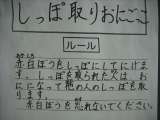 しっぽ取りおにごっこ
ルール
赤白ぼうをしっぽにしてにげま
す。しっぽを取られた人は、お
にになって他の人のしっぽを取
ります。
赤白ぼうを忘れないでください。